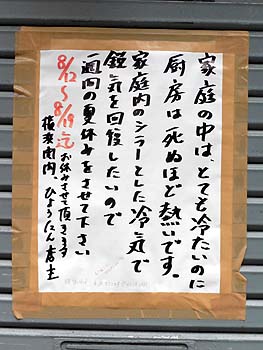 家庭の中は、とても冷たいのに
厨房は死ぬほど熱いです。
家庭内のシラーとした冷気で
鋭気を回復したいので
一週間の夏休みをさせて下さい
8/12〜8/19迄お休みさせて頂きます
横浜関内、ひょうたん 店主